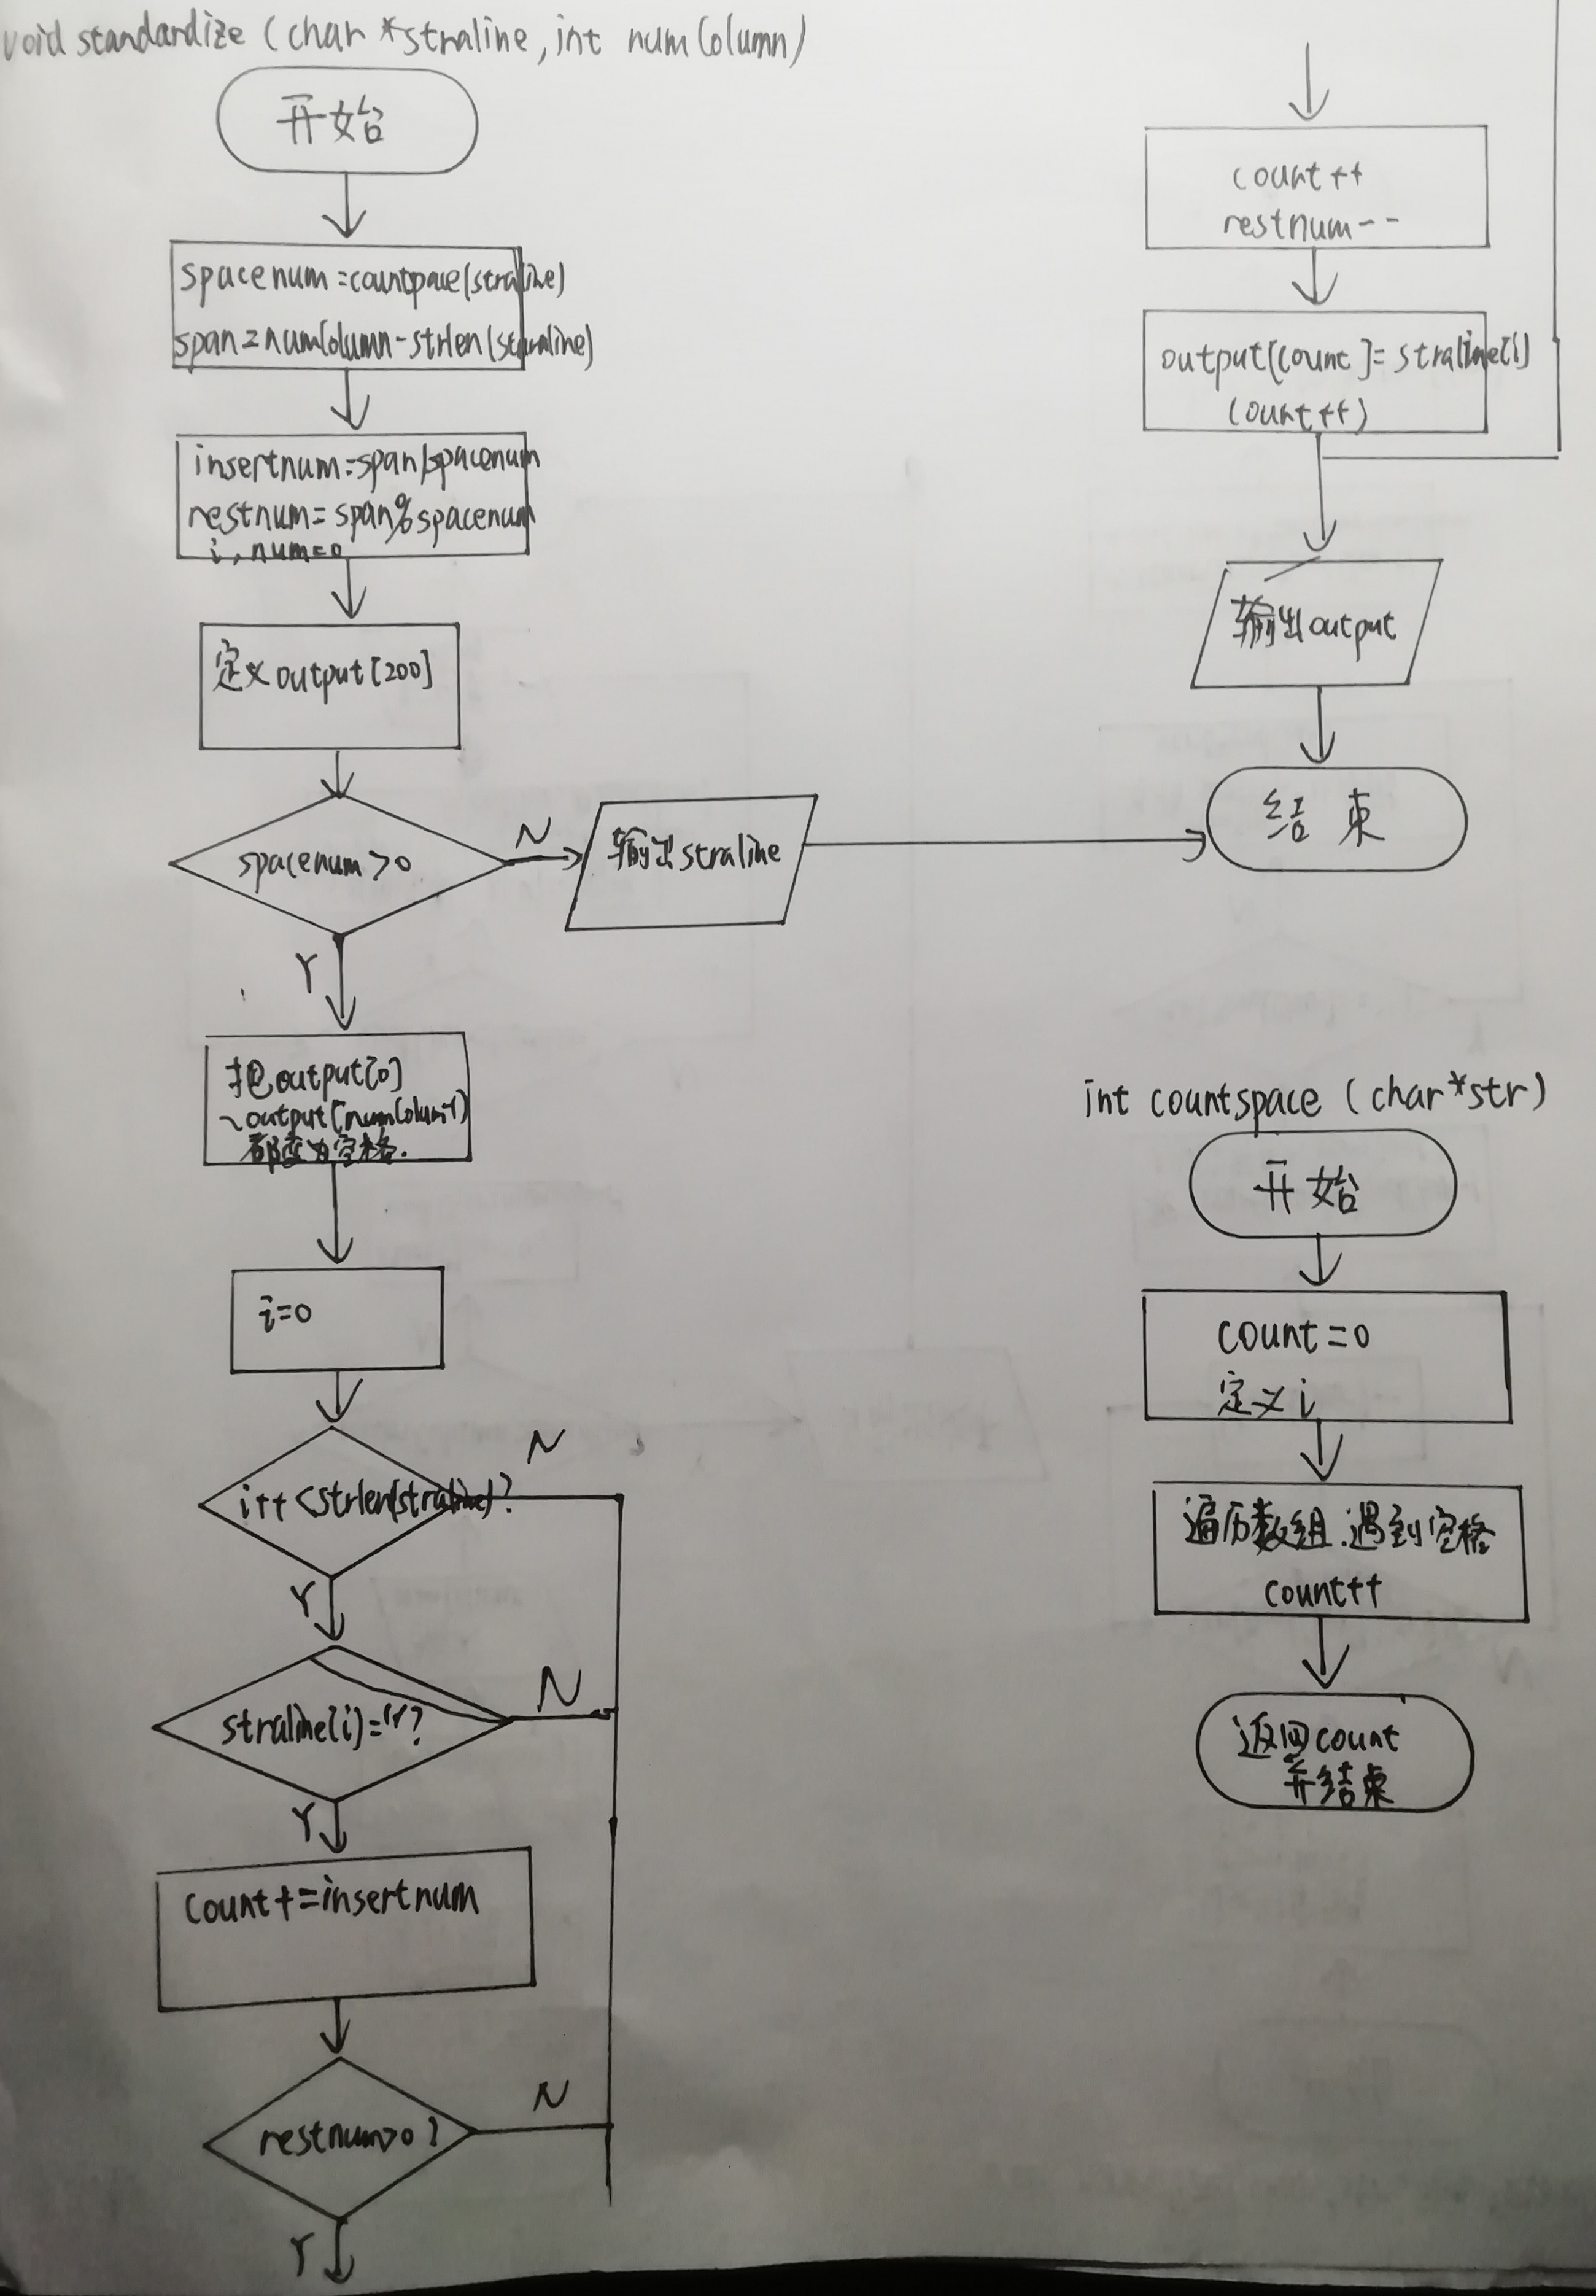 void standardize (char *straline, int numColumn)
开始
spacenum=countpace(straline)
span=numColumn-strlen(straline)
insertnum=span/spacenum
restnum=span%spacenum
i,num=0
定义output[200]
spacenum>0
N
输出straline
Y
把output[0]
~output[numColum-1]
都变为空格.
i=0
i++<strlen(straline)?
N
Y
straline[i]=' '?
N
Y
count+=insertnum
restnum>0?
N
Y
count++
restnum--
output[count]=straline[i]
(count++)
输出output
结束
int countspace (char*str)
开始
count=0
定义i
遍历数组.遇到空格
count++
返回count
并结束